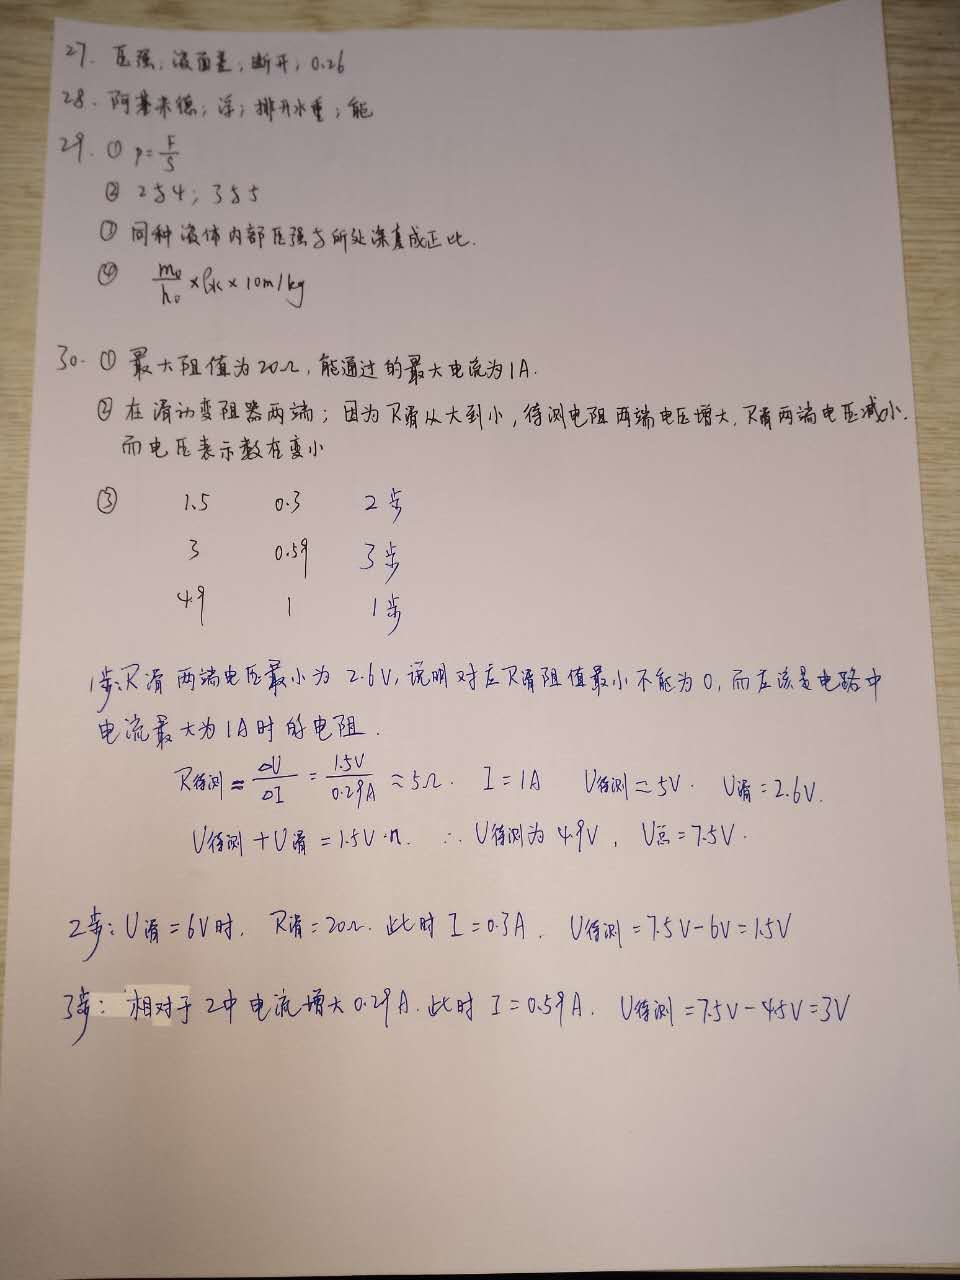 27. 压强; 液面差; 断开; 0.26
28. 阿基米德; 浮; 排开水重; 能
29. ① p=F/S
② 2与4; 3与5
③ 同种液体内部压强与所处深度成正比.
④ m₀/h₀ ×ρ水×10m/kg
30. ① 最大阻值为20Ω, 能通过的最大电流为1A.
② 在滑动变阻器两端; 因为R滑从大到小, 待测电阻两端电压增大, R滑两端电压减小.
而电压表示数在变小
③ 1.5 0.3 2步
3 0.59 3步
4.9 1 1步
1步: R滑两端电压最小为2.6V, 说明对应R滑阻值最小不能为0, 而应该是电路中
电流最大为1A时的电阻.
R待测=ΔU/ΔI=1.5V/0.29A≈5Ω. I=1A U待测≈5V. U滑=2.6V.
U待测+U滑=1.5V·n. ∴U待测为4.9V, U总=7.5V.
2步: U滑=6V时, R滑=20Ω. 此时I=0.3A. U待测=7.5V-6V=1.5V
3步: 相对于2中电流增大0.29A. 此时I=0.59A. U待测=7.5V-4.5V=3V